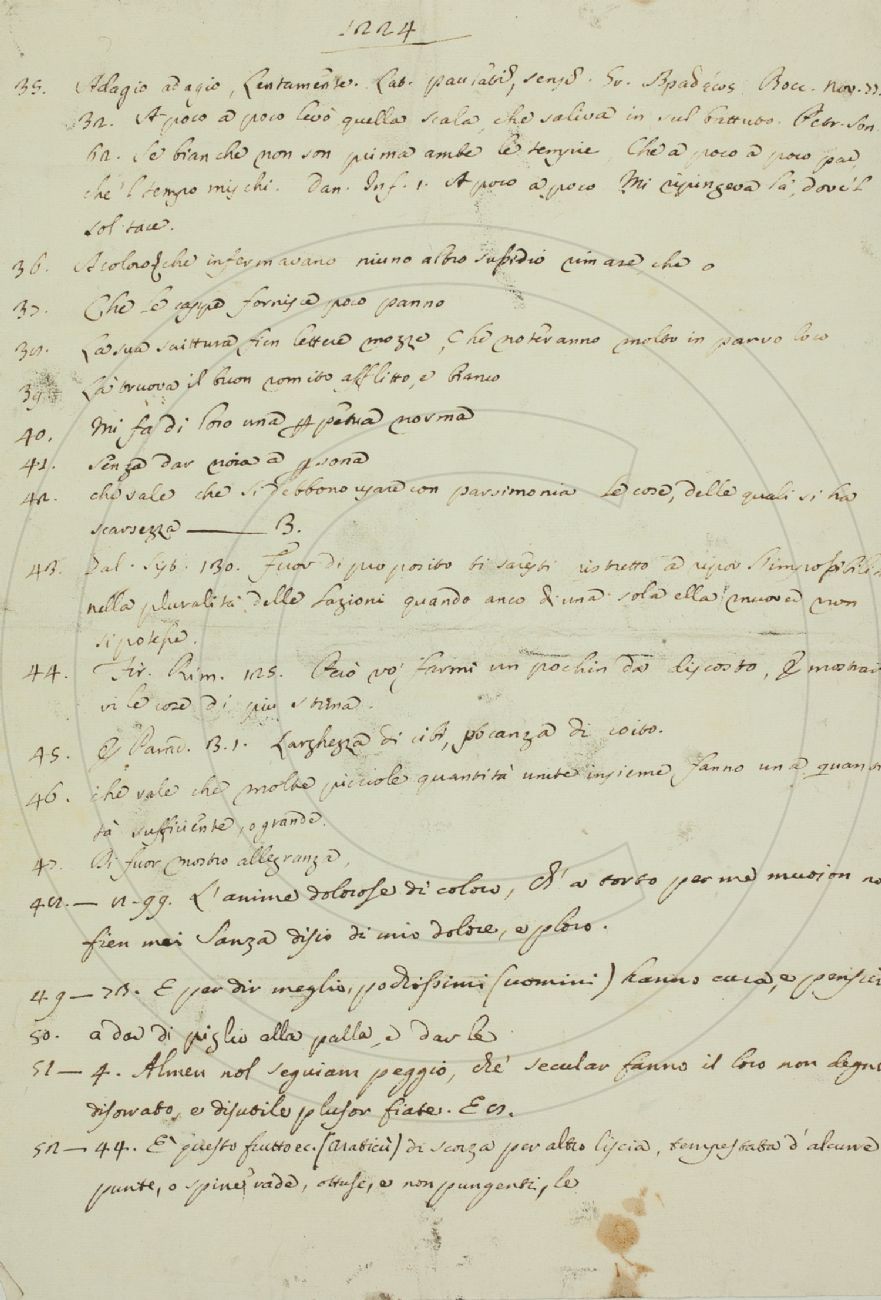 1224
35. Adagio adagio, Lentamente. Lat. paulatim, sensim. Gr. Bocc. nov. 77.
32. A poco a poco levò quella scala, che saliva in sul battuto. Petr. Son.
62. Se bianche non son prima ambe le tempie, Che a poco a poco par,
che 'l tempo mischi. Dan. Inf. 1. A poco a poco Mi ripingeva là, dove 'l
sol tace.
36. A coloro, che infermavano niuno altro sussidio rimase, che o
37. Che le cappe fornisce poco panno
38. La sua scrittura fien lettere mozze, Che noteranno molto in parvo loco
39. La truova il buon romito afflitto, e bianco
40. Mi fa di loro una ꝑpetua norma
41. senza dar noia a ꝑsona
42. che vale che si debbono usare con parsimonia le cose, delle quali si ha
scarsezza —— B.
43. Dal. Sist. 130. Fuor di proposito ti saresti ristretto a ripor l'impossibilità
nella pluralità delle fazioni quando anco di una sola ella muova non
si potesse.
44. Fir. Rim. 125. Però vo' farmi un pochin da discosto, E mostrar
vi le cose di più stima.
45. E Parad. B. 1. Larghezza di cibi, pocanza di coito.
46. che vale che molte picciole quantità unite insieme fanno una quanti
tà sufficiente, o grande.
47. Di fuor mostro allegranza,
48. — 2-99. L'anime dolorose di coloro, ch' a torto per me muoion no
fien mei Sanza disio di mio dolore, e ploro.
49 — 73. E per dir meglio, pochissimi (uomini) hanno cura, e pensier
50. a dar di piglio alla palla, e darle
51 — 4. Almen nol seguiam peggio, che secular fanno il loro non degno
disorrato, e disutile plusor fiate. E 8.
52 — 44. E' questo frutto ec. (Araticù) di scorza per altro liscia, tempestata d'alcune
punte, o spine rade, ottuse, e non pungenti, le